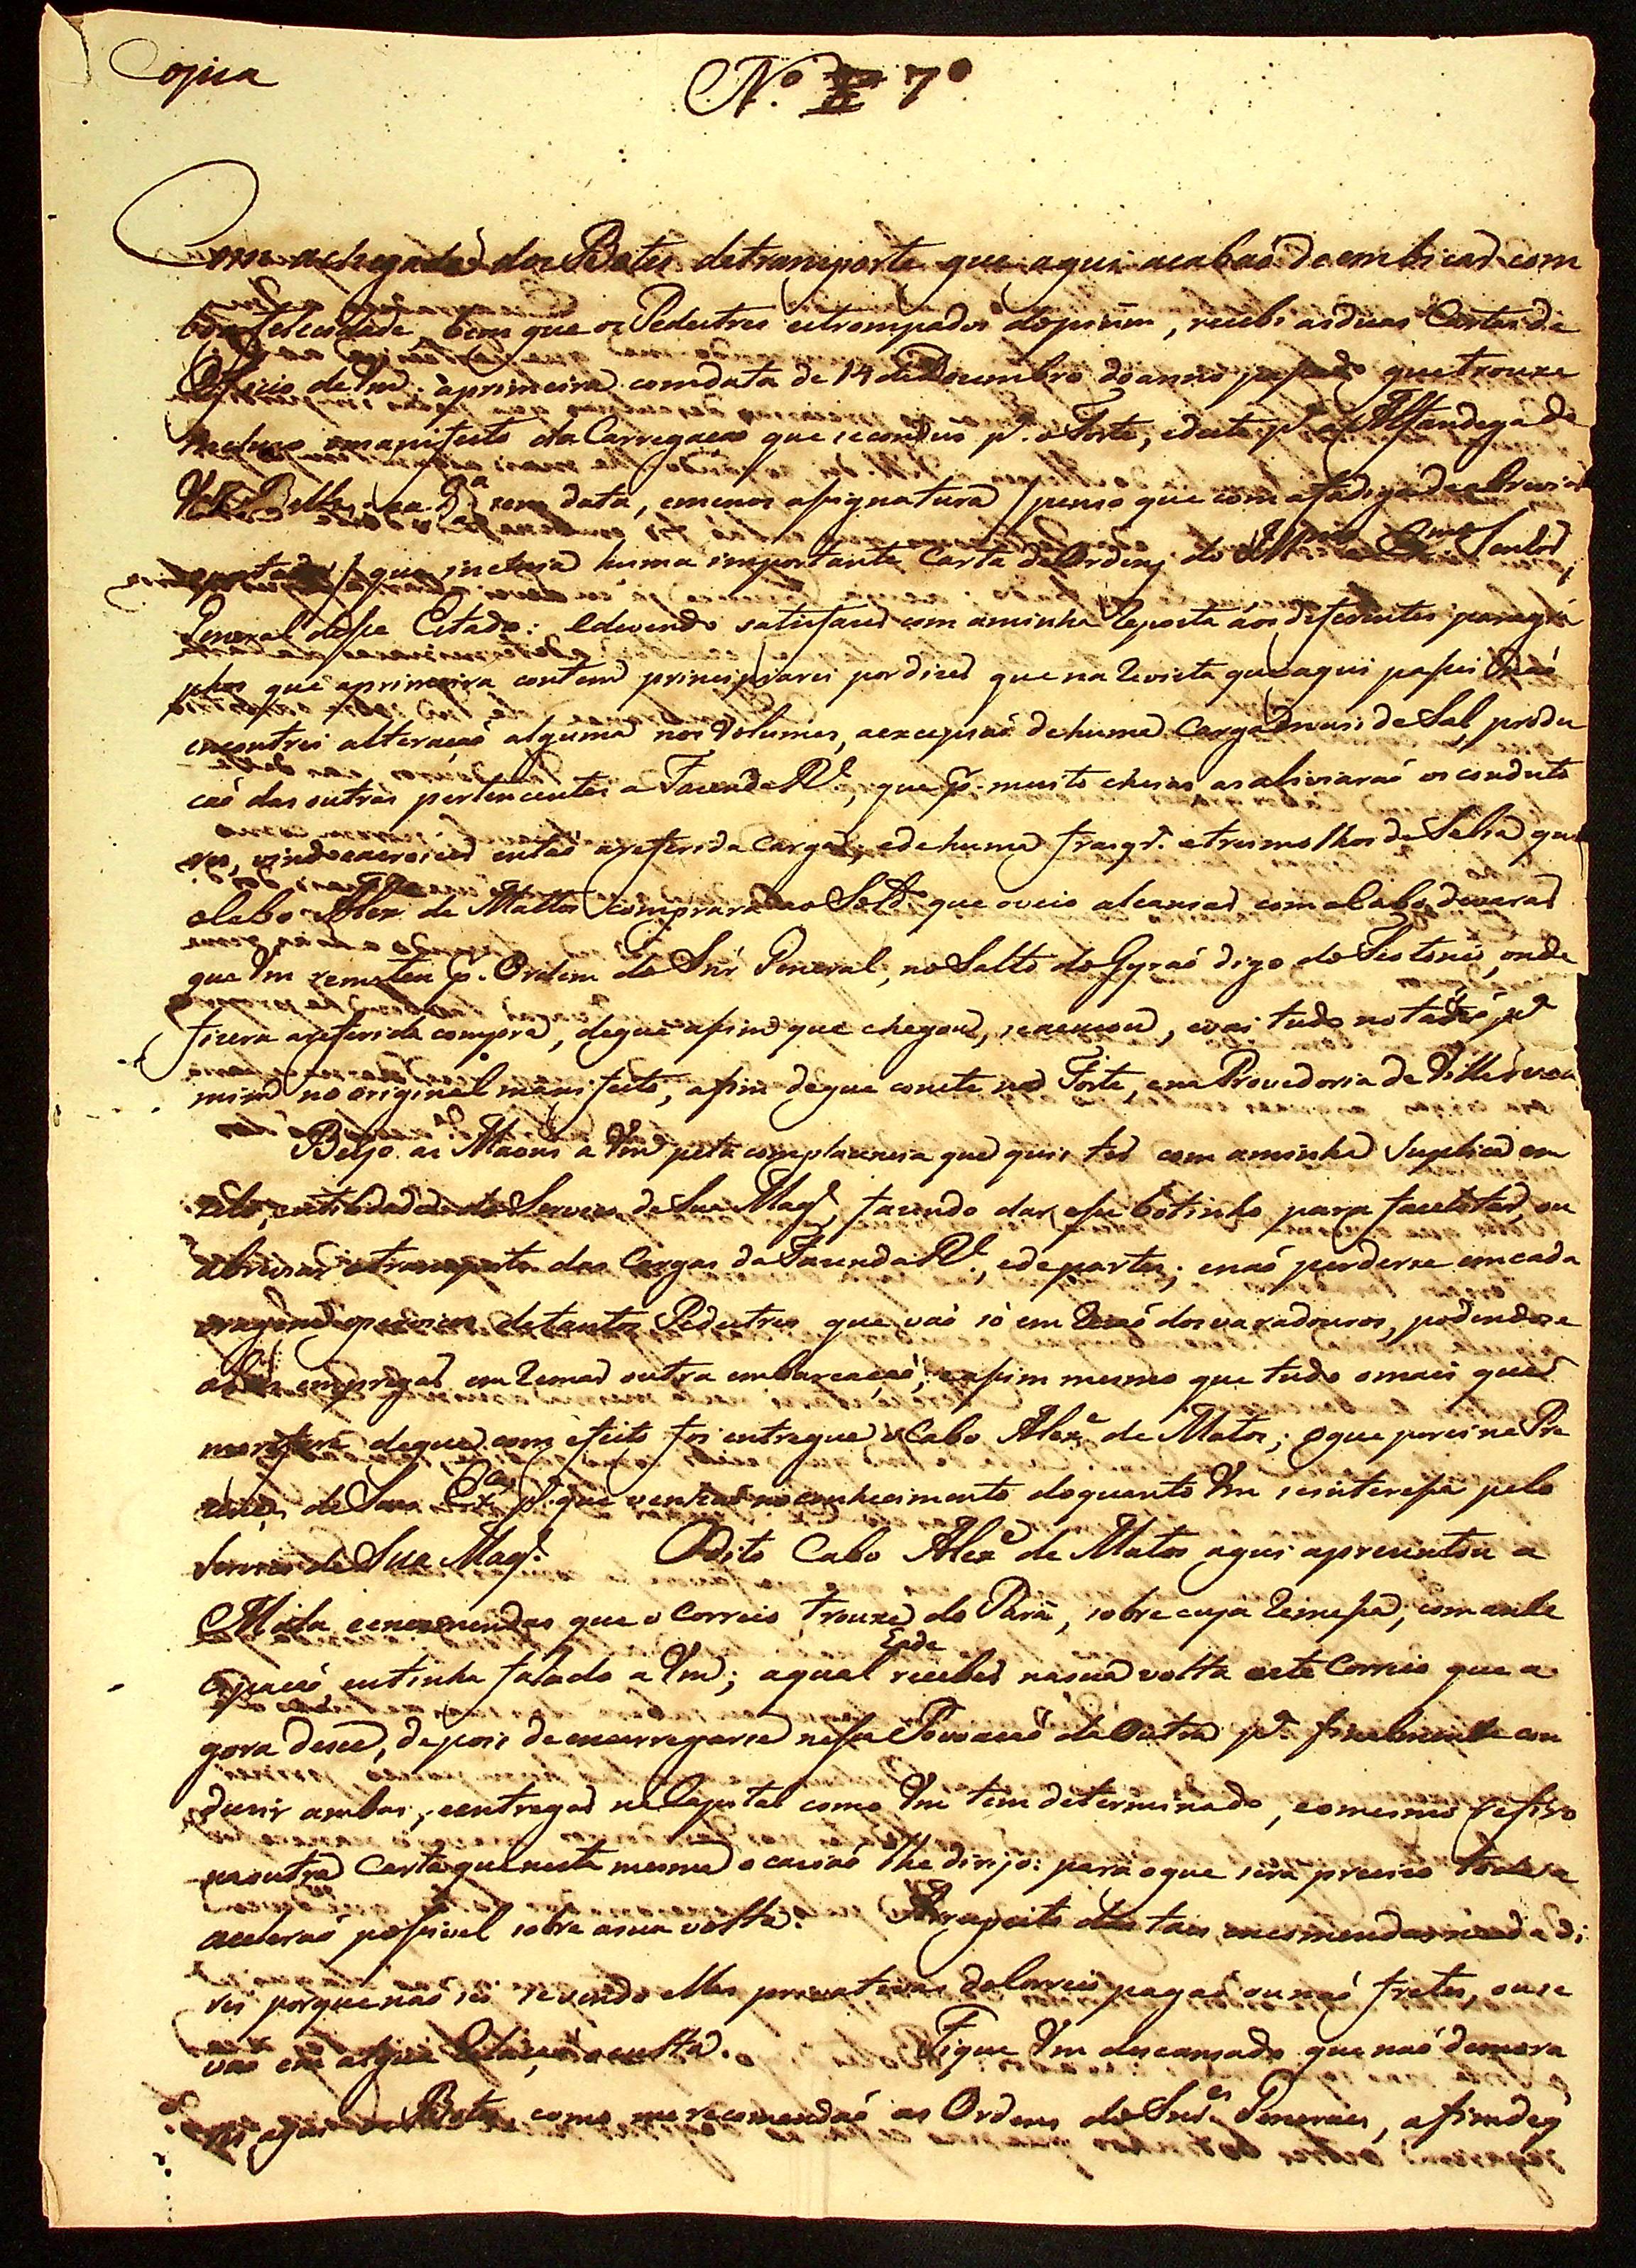 Copia
N.º 7º
Com a chegada dos Botes de transporte que aqui acabaõ de embicar com
boa felicidade, bem que os Pedestres estrompados, recebi as duas Cartas de
Officio de Vm. a primeira com data de 14 de Dezembro do anno passado que trouxe
incluzo o manifesto da Carregacaõ que se conduz p.ª o Forte, e deste p.ª a Alfandega de
V.ª Bella, e a 2.ª sem data, e menos assignatura (penso que com a fadiga de abreviar
) que incluia huma importante Carta de Ordens do Ill.mo e Ex.mo Senhor
General desse Estado: E devendo satisfazer com a minha Reposta áos diferentes paragra
phos que a primeira contem principiarei por dizer que na revista que aqui passei naõ
encontrei alteraçaõ alguma nos Volumes, a excepsaõ de huma Carga mais de Sal, produ
caõ das outras pertencentes a Fazenda R.l, que p.r muito cheias as aliviaraõ os conduto
res, vindo a crescer entaõ a referida Carga; e de huma frasqr.ª e tres molhos de Salsa que
o Cabo Alex.e de Mattos comprara ao Sold.º que o veio alcansar com o Cabo de
que Vm remeteu p.r Ordem do Snr General, no Salto do Gyraõ digo do Teotonio, onde
fizera a referida compra, de que assim que chegou, se acuzou, e vai tudo notado p.r
mim no original manifesto, a fim de que conste no Forte, e na Provedoria de Villa
Beijo as Maons a Vm pela complacencia que quis ter com a minha Suplica em
zelo, e utilidade do Serviço de Sua Mag.e, fazendo dar esse botinho para facelitar ou
abreviar o transporte das Cargas da Fazenda R.l, e de partes; e naõ perderse em cada
viagem de tantos Pedestres que vaõ só em razaõ dos varadouros, podendose
empregar em remar outra embarcaçaõ; e assim mesmo que tudo o mais que
de que com efeito foi entregue o Cabo Alex.e de Matos; o que porei na Pre
zença de Sua Ex.ª p.ª que venha no conhecimento do quanto Vm se interessa pelo
Serviço de Sua Mag.e O dito Cabo Alex.e de Matos aqui aprezentou a
Mala e encomendas que o Correio trouxe do Pará, sobre cuja remessa, com ante
cipacaõ eu tinha falado a Vm; a qual hade receber na sua volta este Correio que a
gora desce, depois de encarregarse nessa Povoacaõ da Outra p.ª finalmente con
duzir ambas, e entregar na Capital como Vm tem determinado, e o mesmo refiro
na outra Carta que nesta mesma ocaziaõ lhe dirijo: para o que será precizo toda a
aceleraõ possivel sobre a sua volta. A respeito das tais encomendas nada di
rei porque naõ sei se vindo ellas privativas do Correio pagaõ ou naõ fretes, ou se
vaõ em algũa Relaçaõ occulta. Fique Vm descansado que naõ demora
rei aqui os Botes, como me recomendaõ as Ordens dos Snr.es Generaes, a fim de q̃